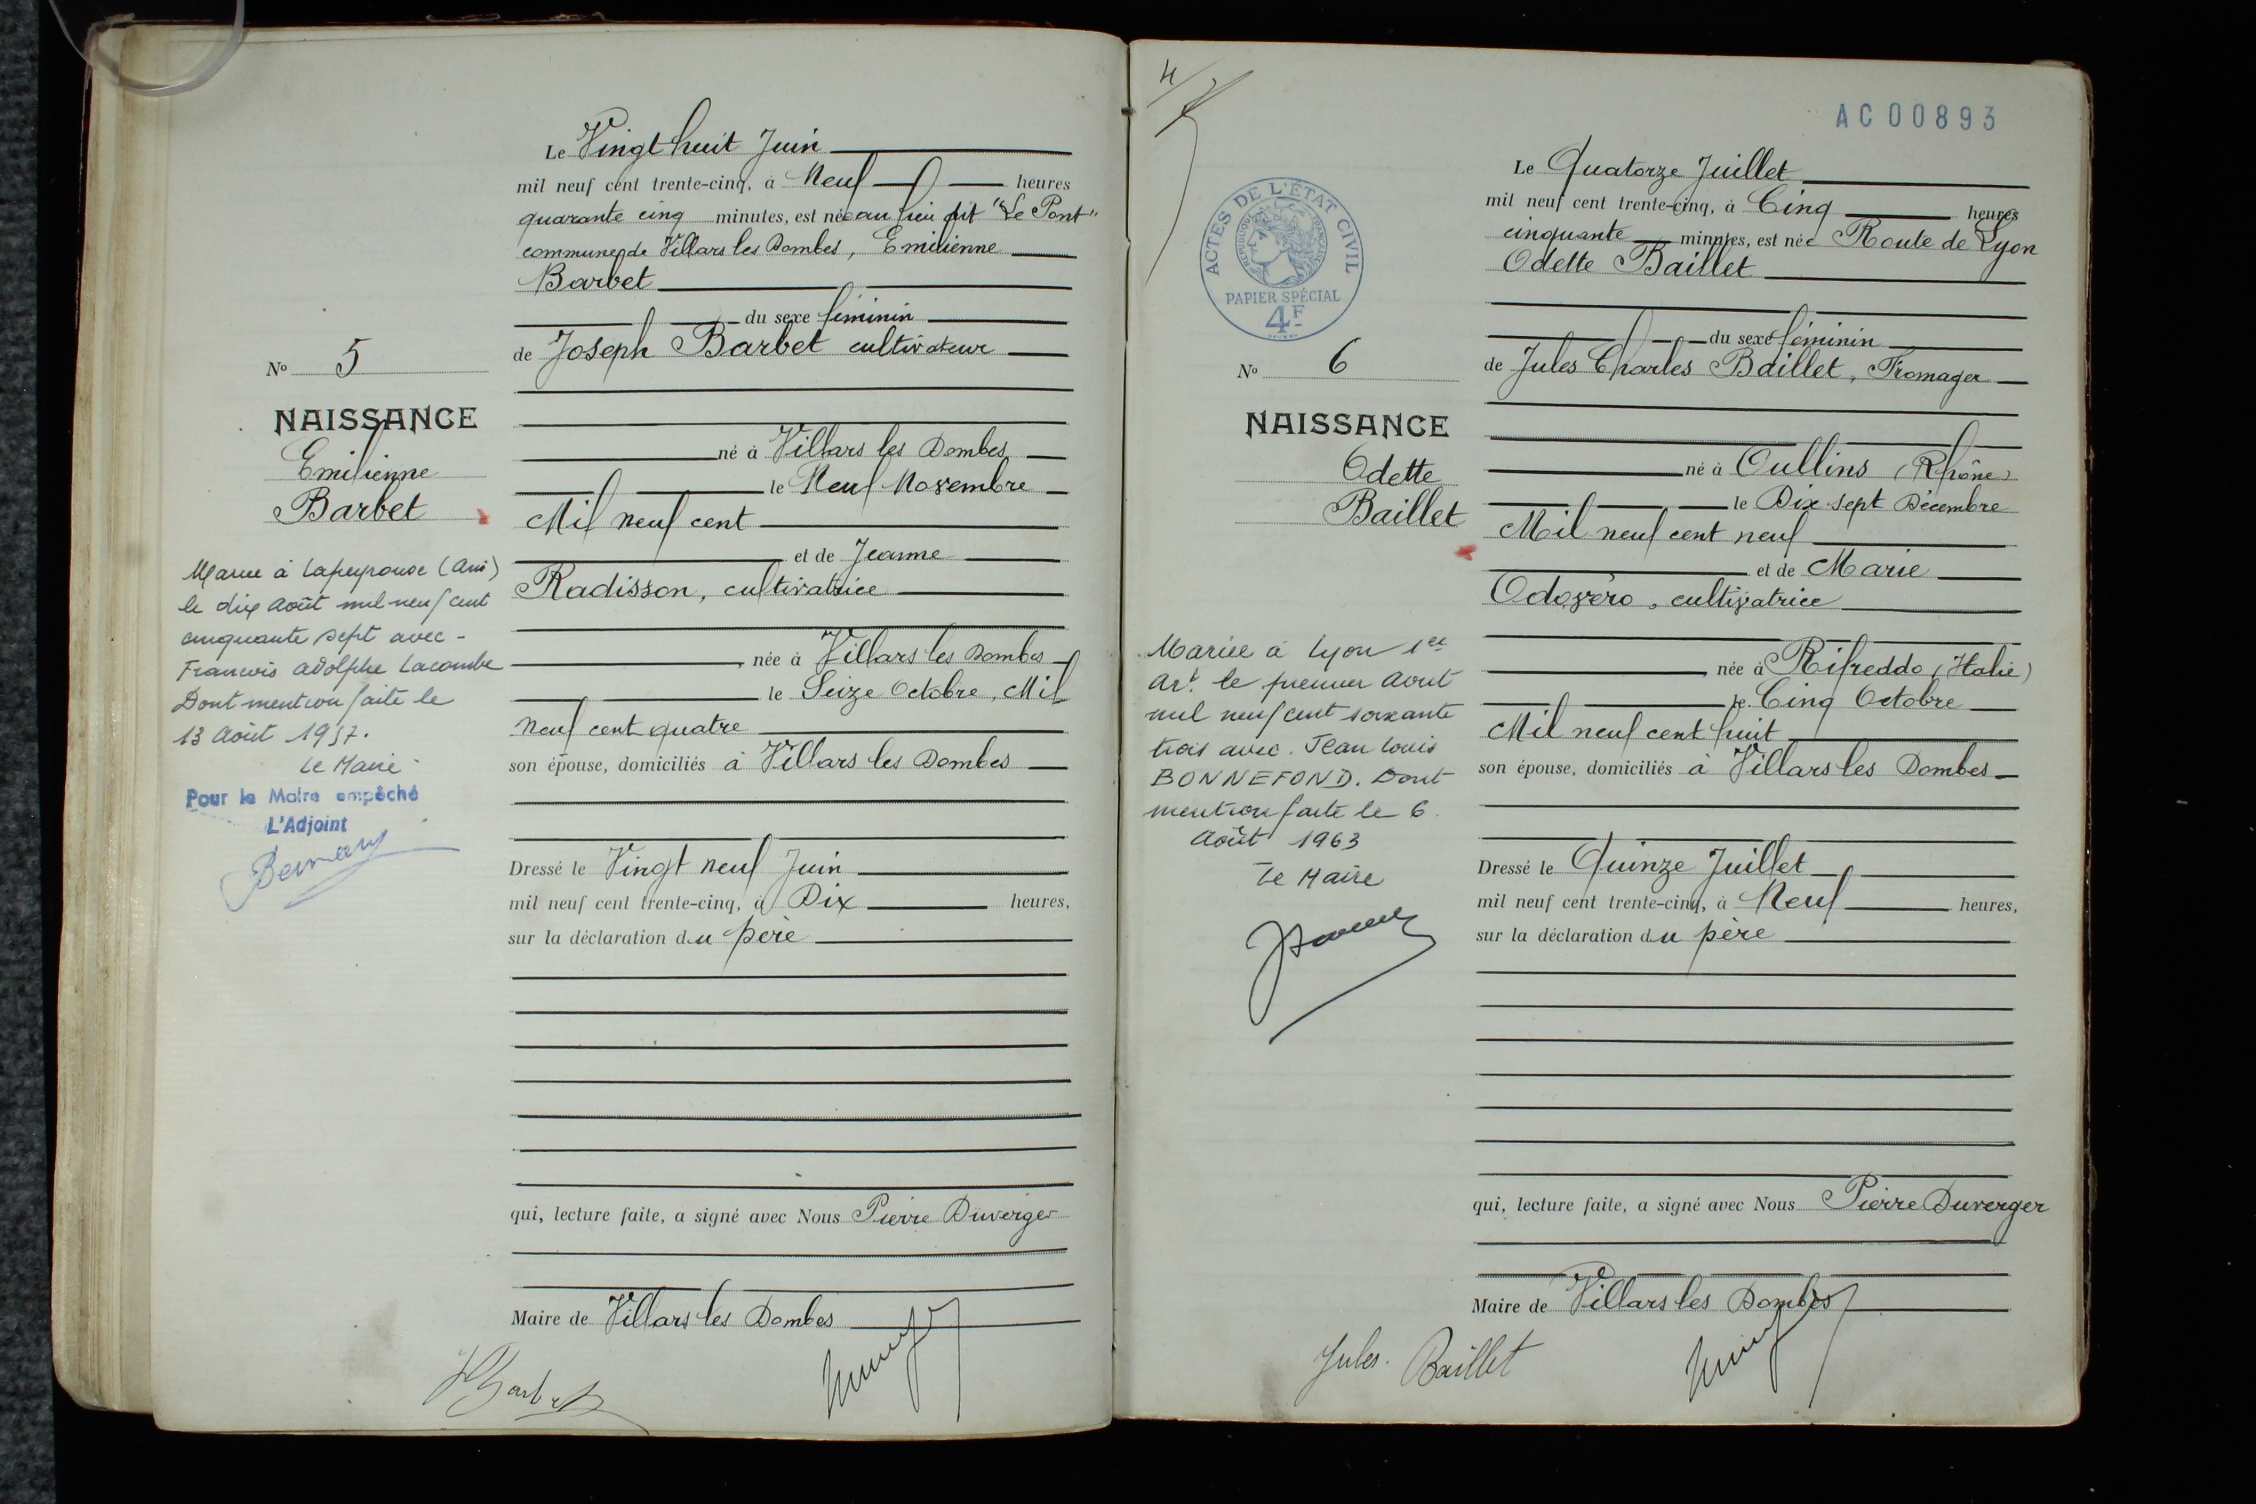 Le Vingt huit Juin
mil neuf cent trente-cinq, à Neuf heures
quarante cinq minutes, est née au lieu dit "Le Pont"
commune de Villars les Dombes, Emilienne
Barbet
du sexe féminin
de Joseph Barbet cultivateur
né à Villars les Dombes
le Neuf Novembre
Mil neuf cent
et de Jeanne
Radisson, cultivatrice
née à Villars les Dombes
le Seize Octobre, Mil
neuf cent quatre
son épouse, domiciliés à Villars les Dombes
Dressé le Vingt neuf Juin
mil neuf cent trente-cinq, à Dix heures,
sur la déclaration du père
qui, lecture faite, a signé avec Nous Pierre Duverger
Maire de Villars les Dombes
No 5
NAISSANCE
Emilienne
Barbet
Mariée à Lapeyrouse (Ain)
le dix Août mil neuf cent
cinquante sept avec -
Francois Adolphe Lacombe
Dont mention faite le
13 Août 1957.
Le Maire
Pour le Maire empêché
L'Adjoint
4
AC00893
ACTES DE L'ÉTAT CIVIL
RÉPUBLIQUE FRANÇAISE
PAPIER SPÉCIAL
4F
No 6
NAISSANCE
Odette
Baillet
Mariée à Lyon 1er
Art. le premier Aout
mil neuf cent soixante
trois avec. Jean Louis
BONNEFOND. Dont
mention faite le 6
Août 1963
Le Maire
Le Quatorze Juillet
mil neuf cent trente-cinq, à Cinq heures
cinquante minutes, est née Route de Lyon
Odette Baillet
du sexe féminin
de Jules Charles Baillet, Fromager
né à Oullins (Rhône)
le Dix sept Décembre
Mil neuf cent neuf
et de Marie
Odoséro, cultivatrice
née à Rifreddo (Italie)
le Cinq Octobre
Mil neuf cent huit
son épouse, domiciliés à Villars les Dombes
Dressé le Quinze Juillet
mil neuf cent trente-cinq, à Neuf heures,
sur la déclaration du père
qui, lecture faite, a signé avec Nous Pierre Duverger
Maire de Villars les Dombes
Jules. Baillet